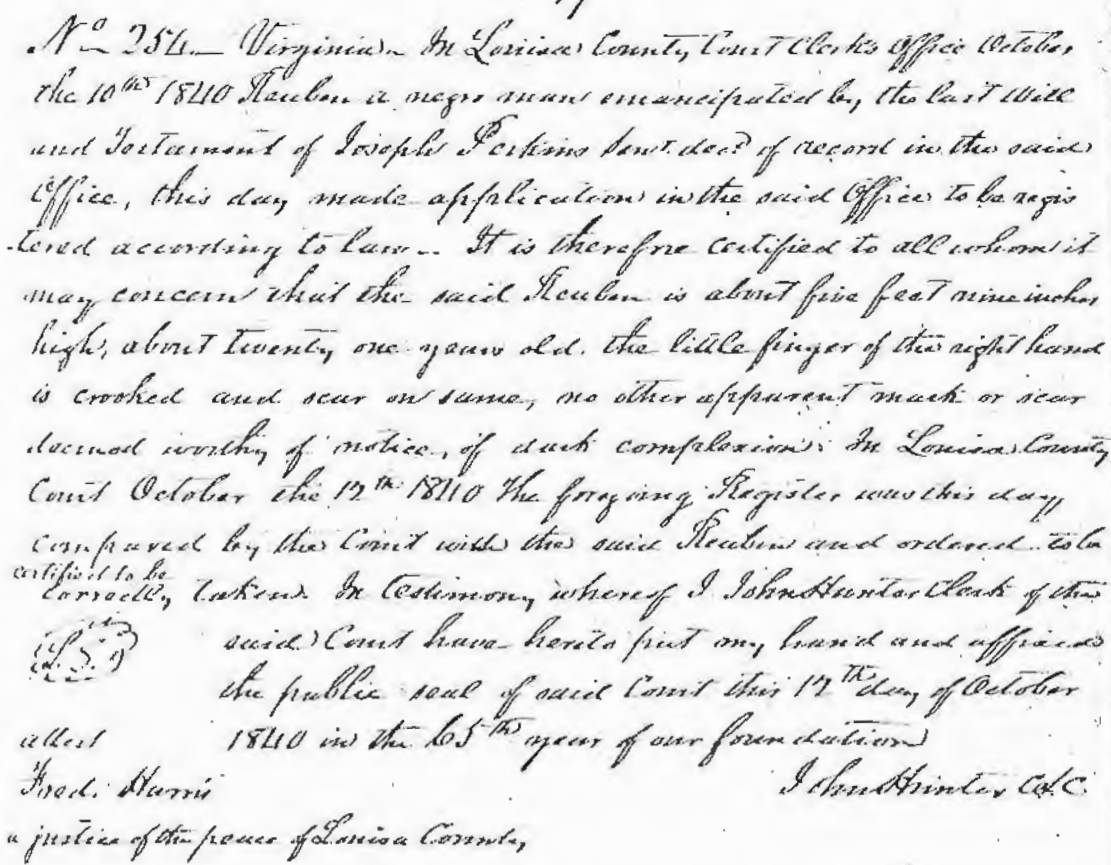 No 254 – Virginia – In Louisa County Court Clerk's Office October
the 10th 1840 Reuben a negro man emancipated by the last Will
and Testament of Joseph Perkins Senr. decd. of record in the said
Office, this day made application in the said Office to be regis
-tered according to law.. It is therefore certified to all whom it
may concern that the said Reuben is about five feet nine inches
high, about twenty one years old. the little finger of the right hand
is crooked and scar on same, no other apparent mark or scar
deemed worthy of notice, of dark complexion. In Louisa County
Court October the 12th 1840 The foregoing Register was this day
compared by the Court with the said Reuben and ordered to be
certified to be
correctly taken. In testimony whereof I John Hunter Clerk of the
(L.S.) said Court have hereto put my hand and affixed
the public seal of said Court this 12th day of October
attest 1840 in the 65th year of our foundation
Fred. Harris John Hunter C.L.C.
a justice of the peace of Louisa County